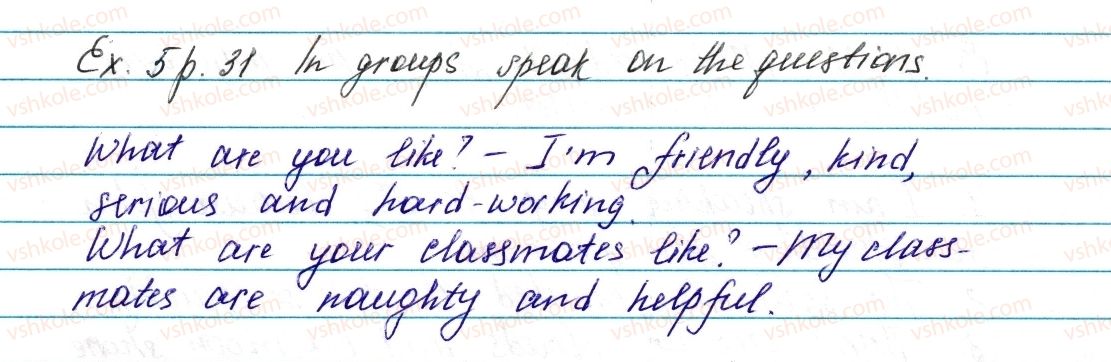 Ex. 5 p. 31 In groups speak on the questions.
What are you like? – I'm friendly, kind,
serious and hard-working.
What are your classmates like? – My class-
mates are naughty and helpful.